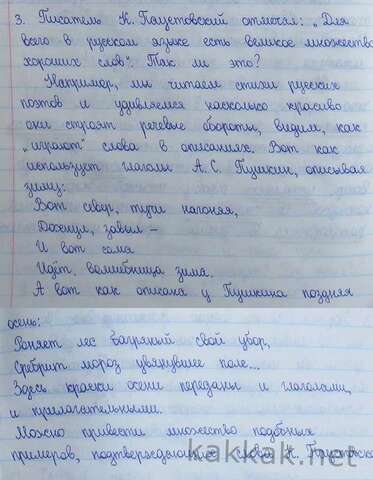 3. Писатель К. Паустовский отмечал: „Для
всего в русском языке есть великое множество
хороших слов“. Так ли это?
Например, мы читаем стихи русских
поэтов и удивляемся насколько красиво
они строят речевые обороты, видим, как
„играют“ слова в описаниях. Вот как
использует глаголы А. С. Пушкин, описывая
зиму:
Вот север, тучи нагоняя,
Дохнул, завыл –
И вот сама
Идёт, волшебница зима.
А вот как описана у Пушкина поздняя
осень:
Роняет лес багряный свой убор,
Сребрит мороз увянувшее поле...
Здесь краски осени переданы и глаголами,
и прилагательными.
Можно привести множество подобных
примеров, подтверждающих слова К.
kakkak.net